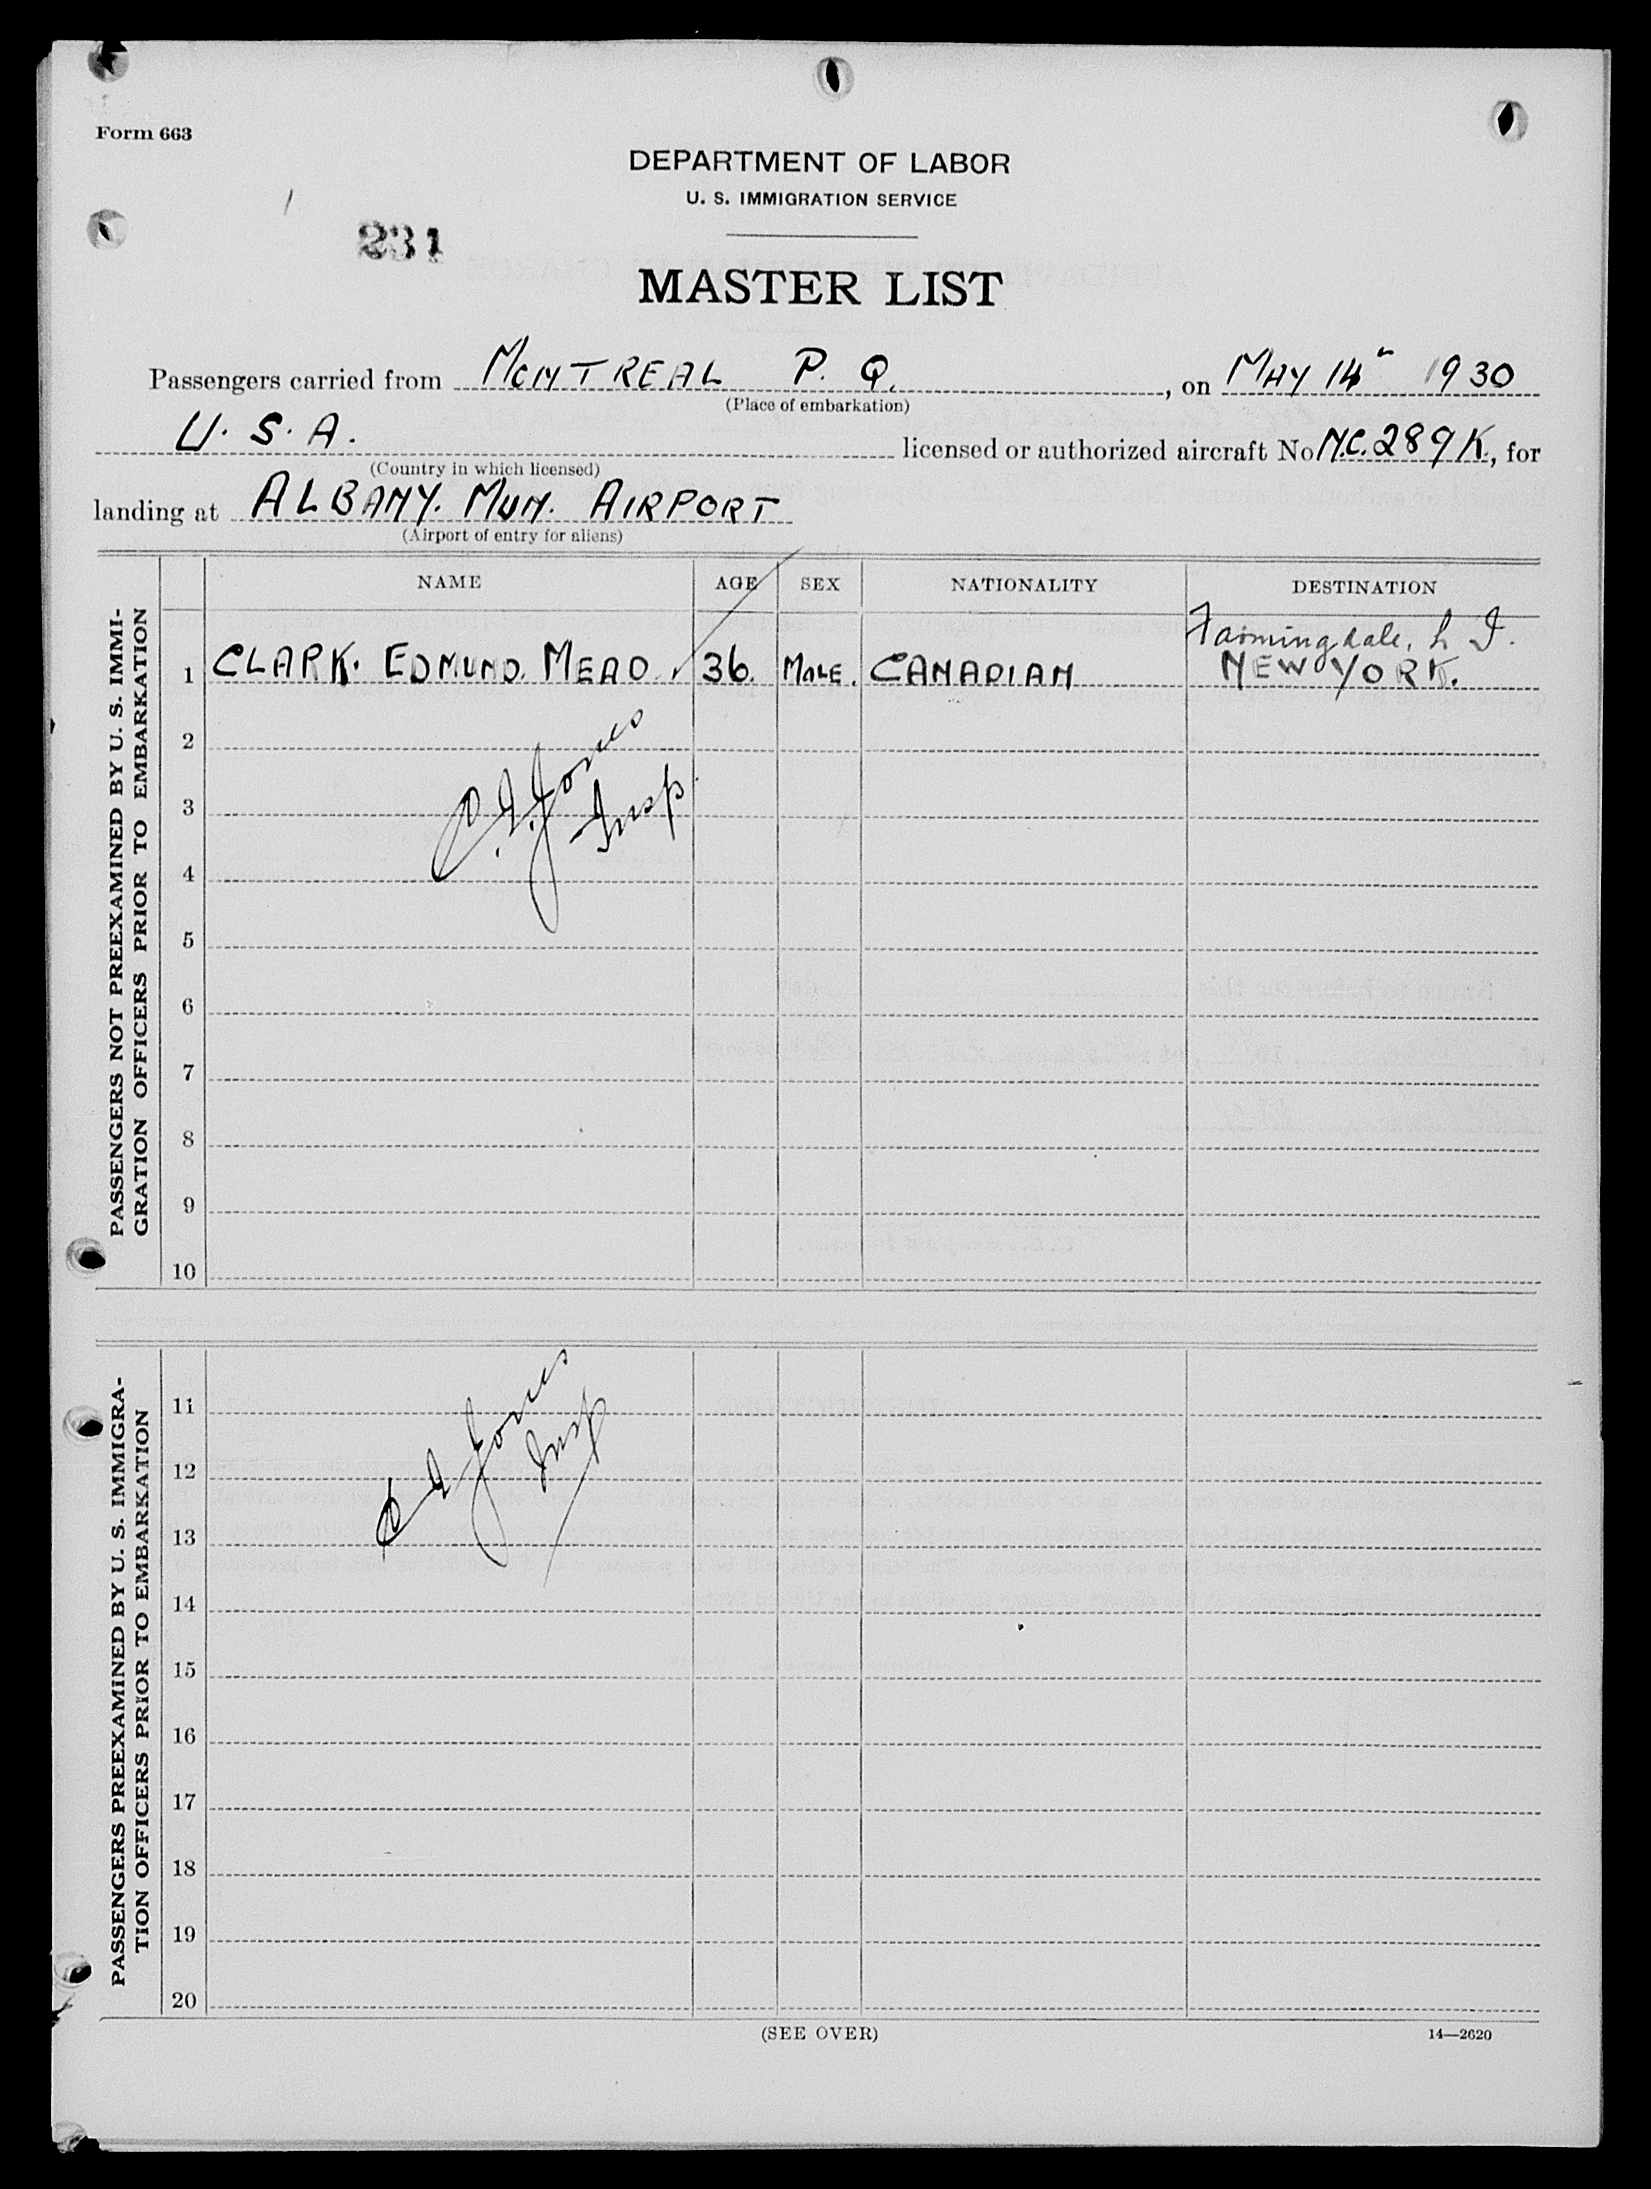 Form 663
DEPARTMENT OF LABOR
U. S. IMMIGRATION SERVICE
231
MASTER LIST
Passengers carried from MONTREAL P. Q. , on MAY 14th 1930
(Place of embarkation)
U. S. A. licensed or authorized aircraft No N.C. 289K, for
(Country in which licensed)
landing at ALBANY. MUN. AIRPORT
(Airport of entry for aliens)
NAME AGE SEX NATIONALITY DESTINATION
PASSENGERS NOT PREEXAMINED BY U. S. IMMI-
GRATION OFFICERS PRIOR TO EMBARKATION
Farmingdale, L I.
1 CLARK. EDMUND. MEAD. 36. MALE. CANADIAN NEW YORK.
2
Jones
3
Insp.
4
5
6
7
8
9
10
PASSENGERS PREEXAMINED BY U. S. IMMIGRA-
TION OFFICERS PRIOR TO EMBARKATION
11
Jones
12
Insp
13
14
15
16
17
18
19
20
(SEE OVER)
14—2620